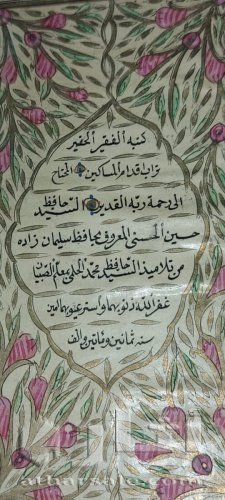 كتبه الفقير الحقير
تراب اقدام المساكين المحتاج
الى رحمة ربه القدير السيد حافظ
حسين الحسنى المعروف بحافظ سليمان زاده
من تلاميذ السيد حافظ محمد الحلمى معلم الصبيان
غفر الله ذنوبهما وستر عيوبهما امين
سنه ثمانين ومأتين والف
atharsale.com